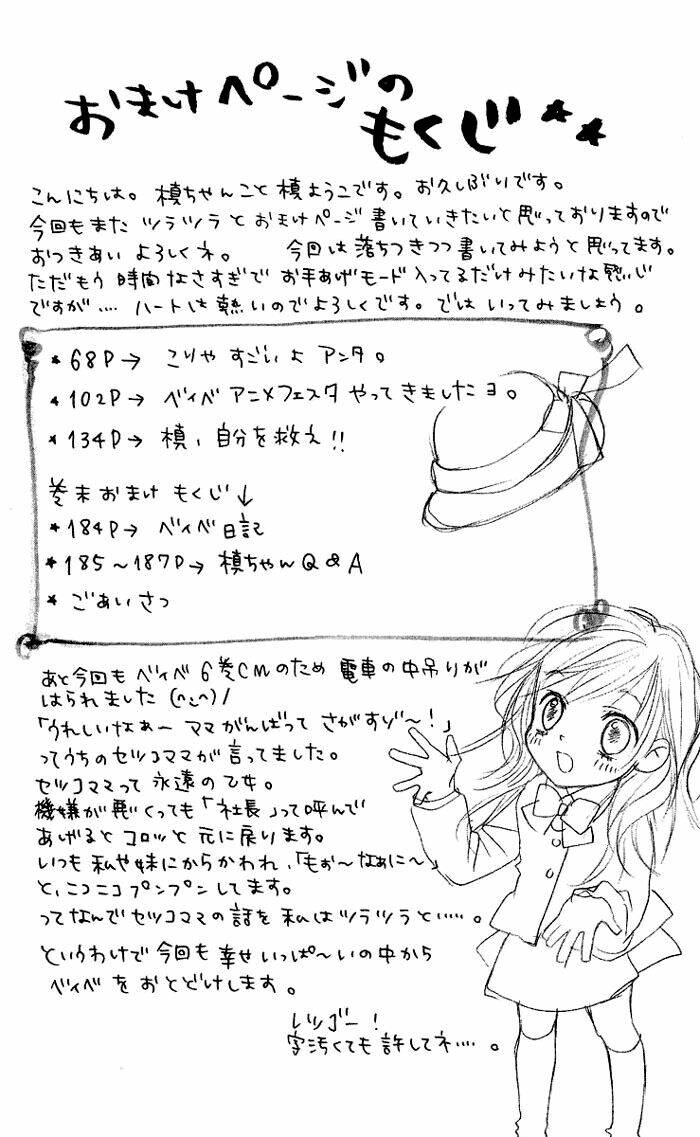 おまけページの
もくじ★★
こんにちは。槙ちゃんこと槙ようこです。お久しぶりです。
今回もまたツラツラとおまけページ書いていきたいと思っておりますので
おつきあいよろしくネ。 今回は落ちつきつつ書いてみようと思ってます。
ただもう時間なさすぎでお手あげモード入ってるだけみたいな感じ
ですが…. ハートは熱いのでよろしくです。ではいってみましょう。
★68P→ こりゃすごいよアンタ。
★102P→ ベイベアニメフェスタやってきましたヨ。
★134P→ 槙、自分を救え!!
巻末おまけもくじ↓
★184P→ ベイベ日記
★185〜187P→ 槙ちゃんQ&A
★ごあいさつ
あと今回もベイベ6巻CMのため電車の中吊りが
はられました(^-^)/
「うれしいなぁーママがんばってさがすゾ〜!」
ってうちのセツコママが言ってました。
セツコママって永遠の乙女。
機嫌が悪くっても「社長」って呼んで
あげるとコロッと元に戻ります。
いつも私や妹にからかわれ、「もぉ〜なぁに〜」
と、ニコニコプンプンしてます。
ってなんでセツコママの話を私はツラツラと……。
というわけで今回も幸せいっぱ〜いの中から
ベイベをおとどけします。
レッゴー!
字汚くても許してネ….。